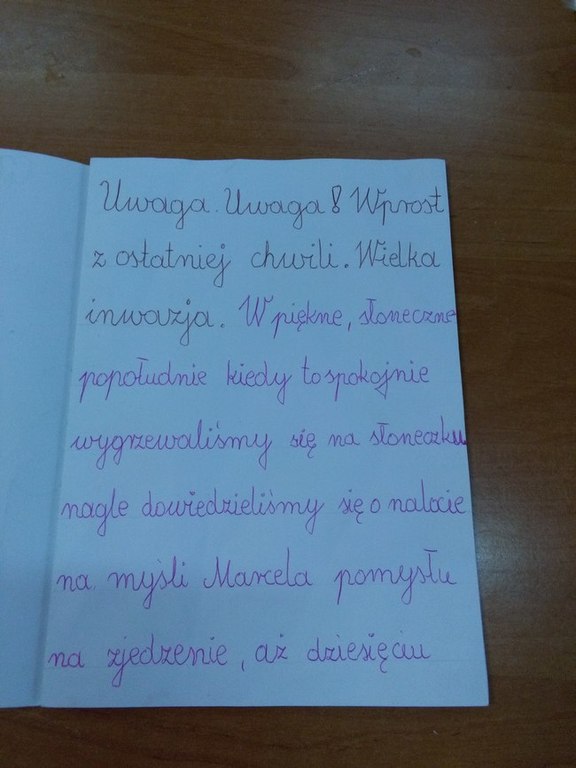 Uwaga. Uwaga! Wprost
z ostatniej chwili. Wielka
inwazja. W piękne, słoneczne
popołudnie kiedy to spokojnie
wygrzewaliśmy się na słoneczku
nagle dowiedzieliśmy się o nalocie
na myśli Marcela pomysłu
na zjedzenie, aż dziesięciu